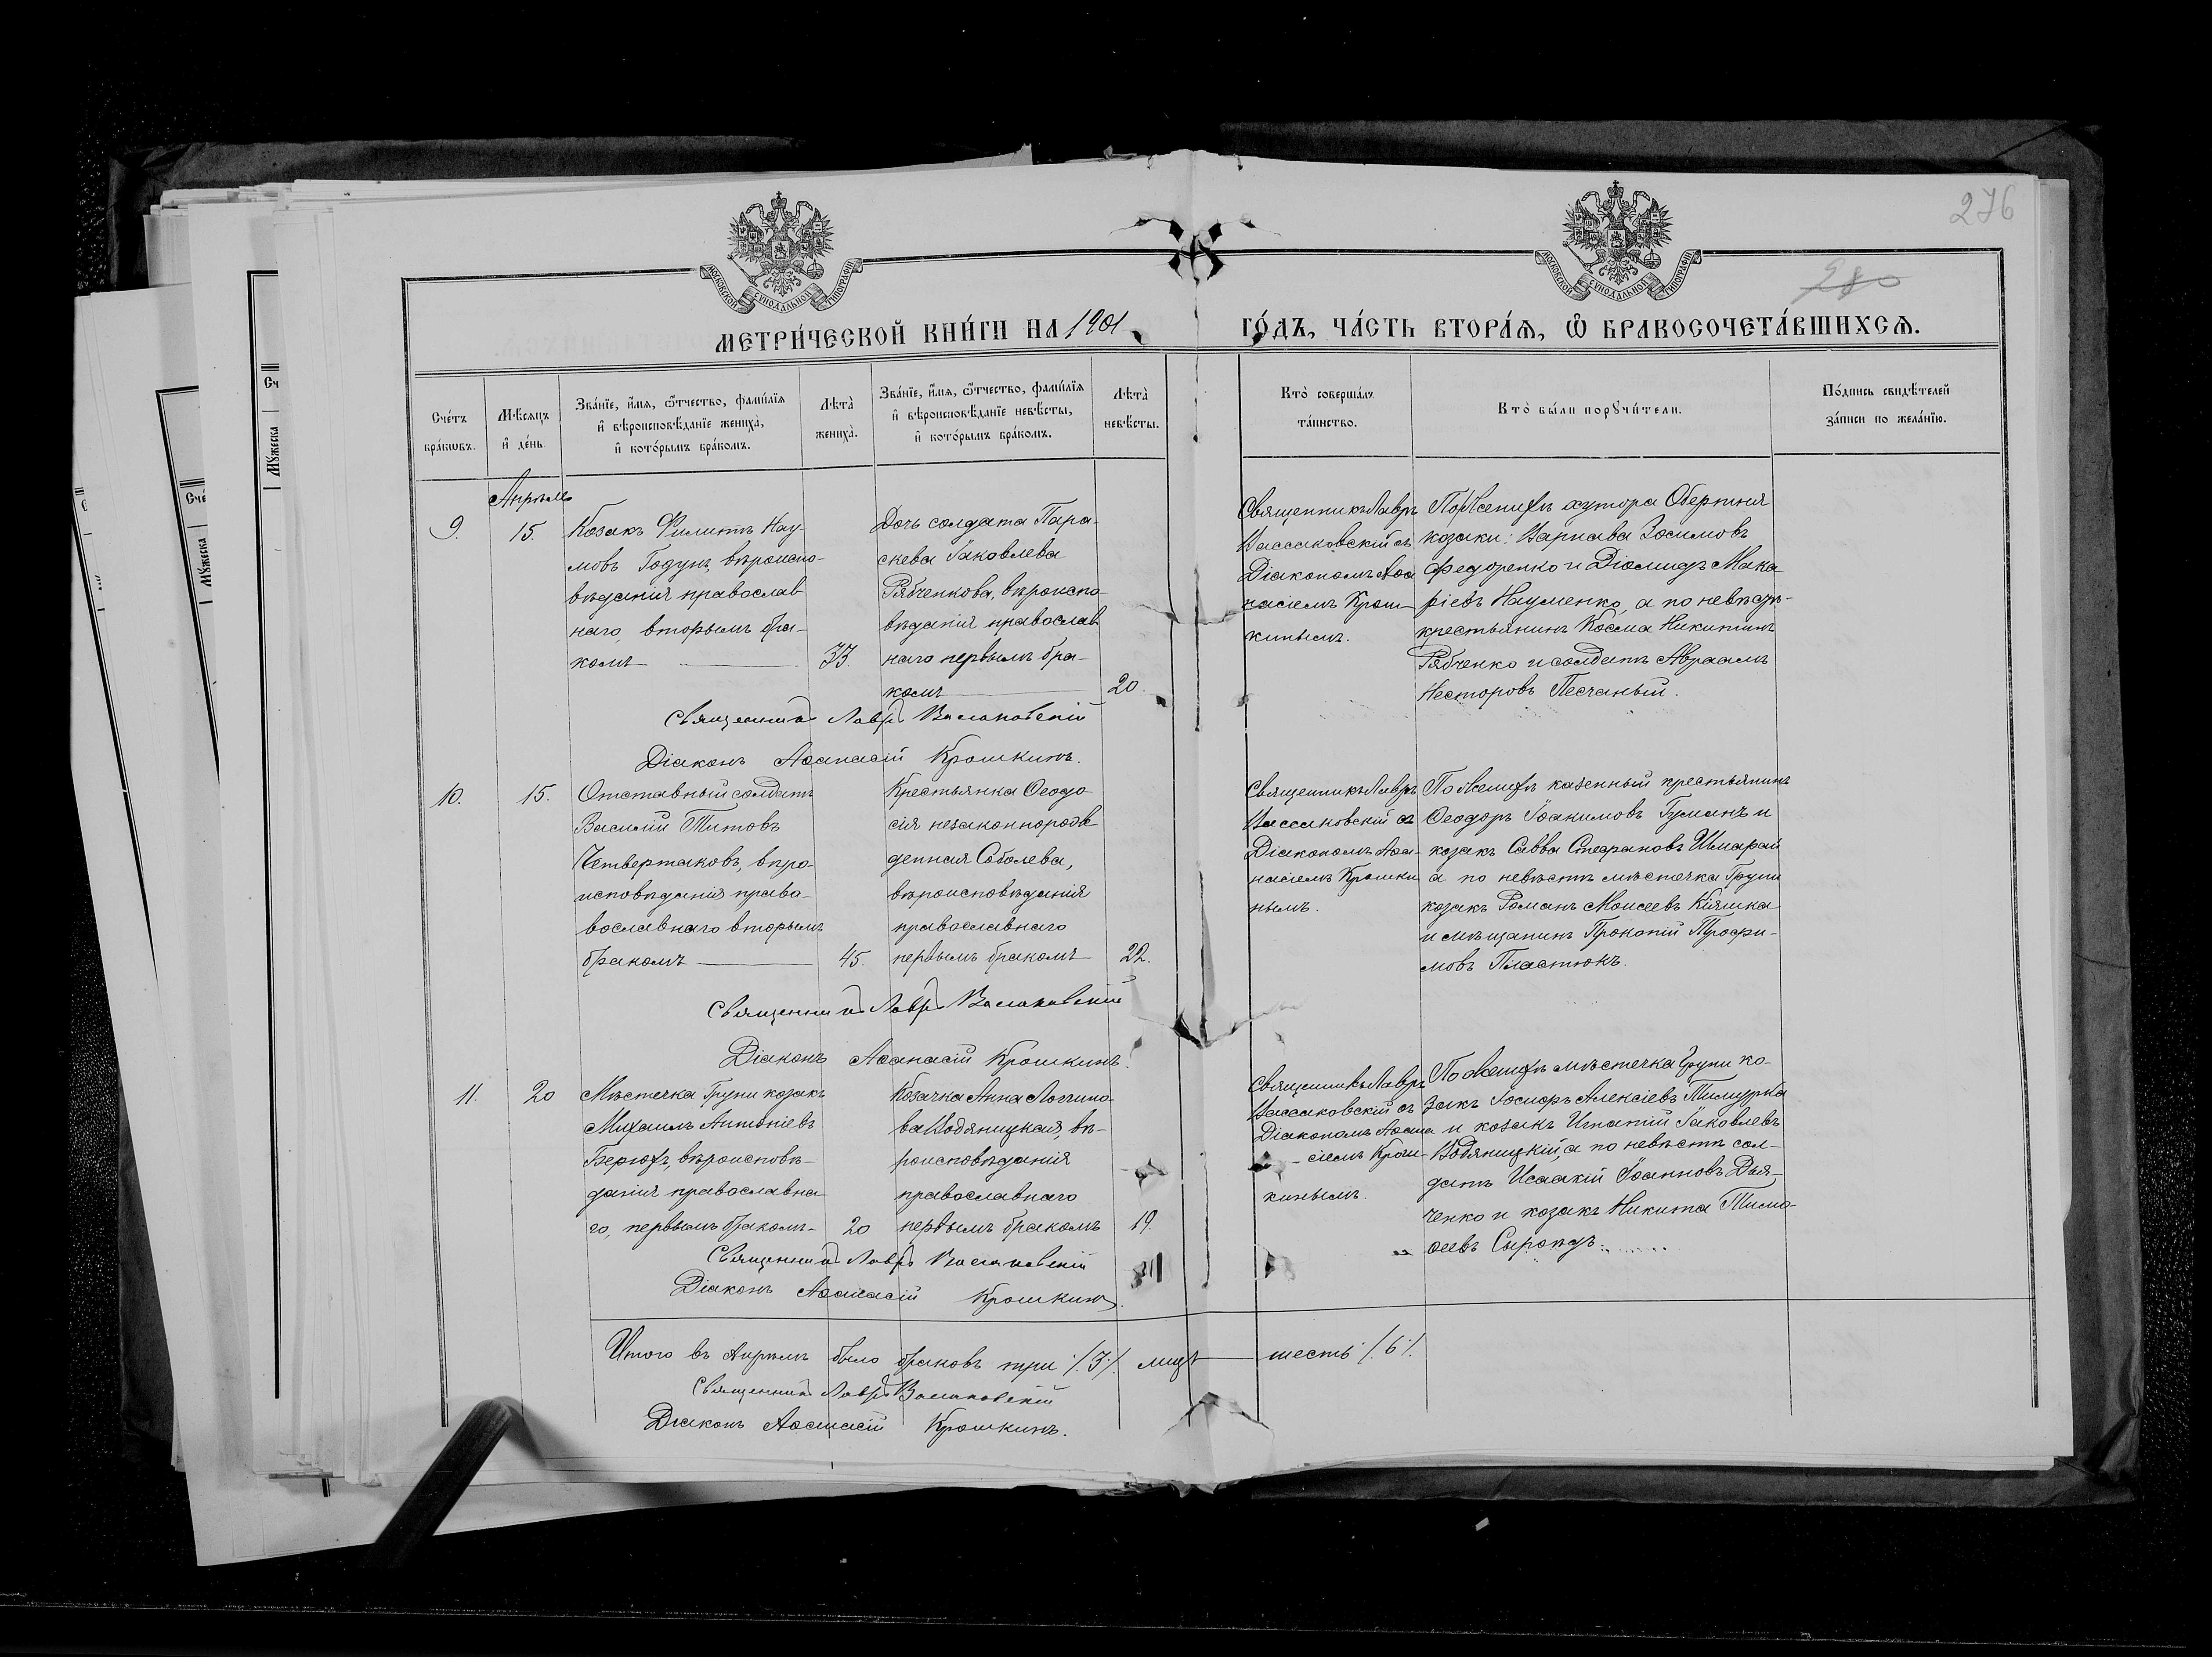 276
280
МОСКОВСКОЙ СѴНОДАЛЬНОЙ ТИПОГРАФІИ
МОСКОВСКОЙ СѴНОДАЛЬНОЙ ТИПОГРАФІИ
МЕТРИ́ЧЕСКОЙ КНИ́ГИ НА 1901 ГО́ДЪ, ЧА́СТЬ ВТОРА́Ѧ, Ѡ҆ БРАКОСОЧЕТА́ВШИХСѦ.
Сче́тъ
бра́кѡвъ.
Мѣ́сяцъ
и҆ де́нь.
Зва́нїе, и҆́мѧ, ѻ҆́тчество, фами́лїѧ
и҆ вѣроисповѣ́данїе жениха̀,
и҆ кото́рымъ бра́комъ.
Лѣта̀
жениха̀.
Зва́нїе, и҆́мѧ, ѻ҆́тчество, фами́лїѧ
и҆ вѣроисповѣ́данїе невѣ́сты,
и҆ кото́рымъ бра́комъ.
Лѣта̀
невѣ́сты.
Кто̀ соверша́лъ
та́инство.
Кто̀ бы́ли порꙋчи́тели.
По́дпись свидѣ́телей
за́писи по жела́нїю.
Апрѣль
9.
15.
Козакъ Филиппъ Нау-
мовъ Годунъ, вѣроиспо-
вѣданія православ
наго вторымъ бра-
комъ
33.
Дочь солдата Пара-
скева Іаковлева
Рябченкова, вѣроиспо-
вѣданія православ
наго первымъ бра-
комъ
20.
Священникъ Лавръ
Вассаковскій съ
Діакономъ Аѳа
насіемъ Крош-
кинымъ.
По женихѣ хутора Обертня
козаки: Варнава Зосимовъ
Федоренко и Діомидъ Мака
ріевъ Науменко, а по невѣстѣ-
крестьянинъ Косма Никитинъ
Рябченко и солдатъ Авраамъ
Несторовъ Песчаный.
Священникъ Лавръ Вассаковскій
Діаконъ Аѳанасій Крошкинъ.
10.
15.
Отставный солдатъ
Василій Титовъ
Четвертаковъ, вѣро-
исповѣданія право-
вославнаго вторымъ
бракомъ
45.
Крестьянка Ѳеодо
сія незаконнорож
денная Соболева,
вѣроисповѣданія
православнаго
первымъ бракомъ
22.
Священникъ Лавръ
Вассаковскій съ
Діакономъ Аѳа-
насіемъ Крошки
нымъ.
По женихѣ казенный крестьянинъ
Ѳеодоръ Іоакимовъ Гуманъ и
козакъ Савва Стефановъ Шмарай
а по невѣстѣ мѣстечка Груни
козакъ Романъ Моисеевъ Кіяшка
и мѣщанинъ Прокопій Трофи-
мовъ Пластюкъ.
Священникъ Лавръ Вассаковскій
Діаконъ Аѳанасій Крошкинъ.
11.
20
Мѣстечка Груни козакъ
Михаилъ Антоніевъ
вѣроисповѣ-
данія православна
го, первымъ бракомъ-
20
Козачка Анна Логгино-
ва Водяницкая, вѣ-
роисповѣданія
православнаго
первымъ бракомъ
19.
Священникъ Лавръ
Вассаковскій съ
Діакономъ Аѳана
сіемъ Крош-
кинымъ.
По женихѣ мѣстечка Груни ко-
закъ Іосифъ Алексіевъ
и козакъ Игнатій Іаковлевъ
Водяницкій, а по невѣстѣ сол-
датъ Исаакій Іоанновъ Дья-
ченко и козакъ Никита Тимо-
ѳеевъ Сыроѣдъ.
Священникъ Лавръ Вассаковскій
Діаконъ Аѳанасій Крошкинъ.
Итого въ Апрѣлѣ было браковъ три /. 3 /. лицъ шесть /. 6 /.
Священникъ Лавръ Вассаковскій
Діаконъ Аѳанасій Крошкинъ.